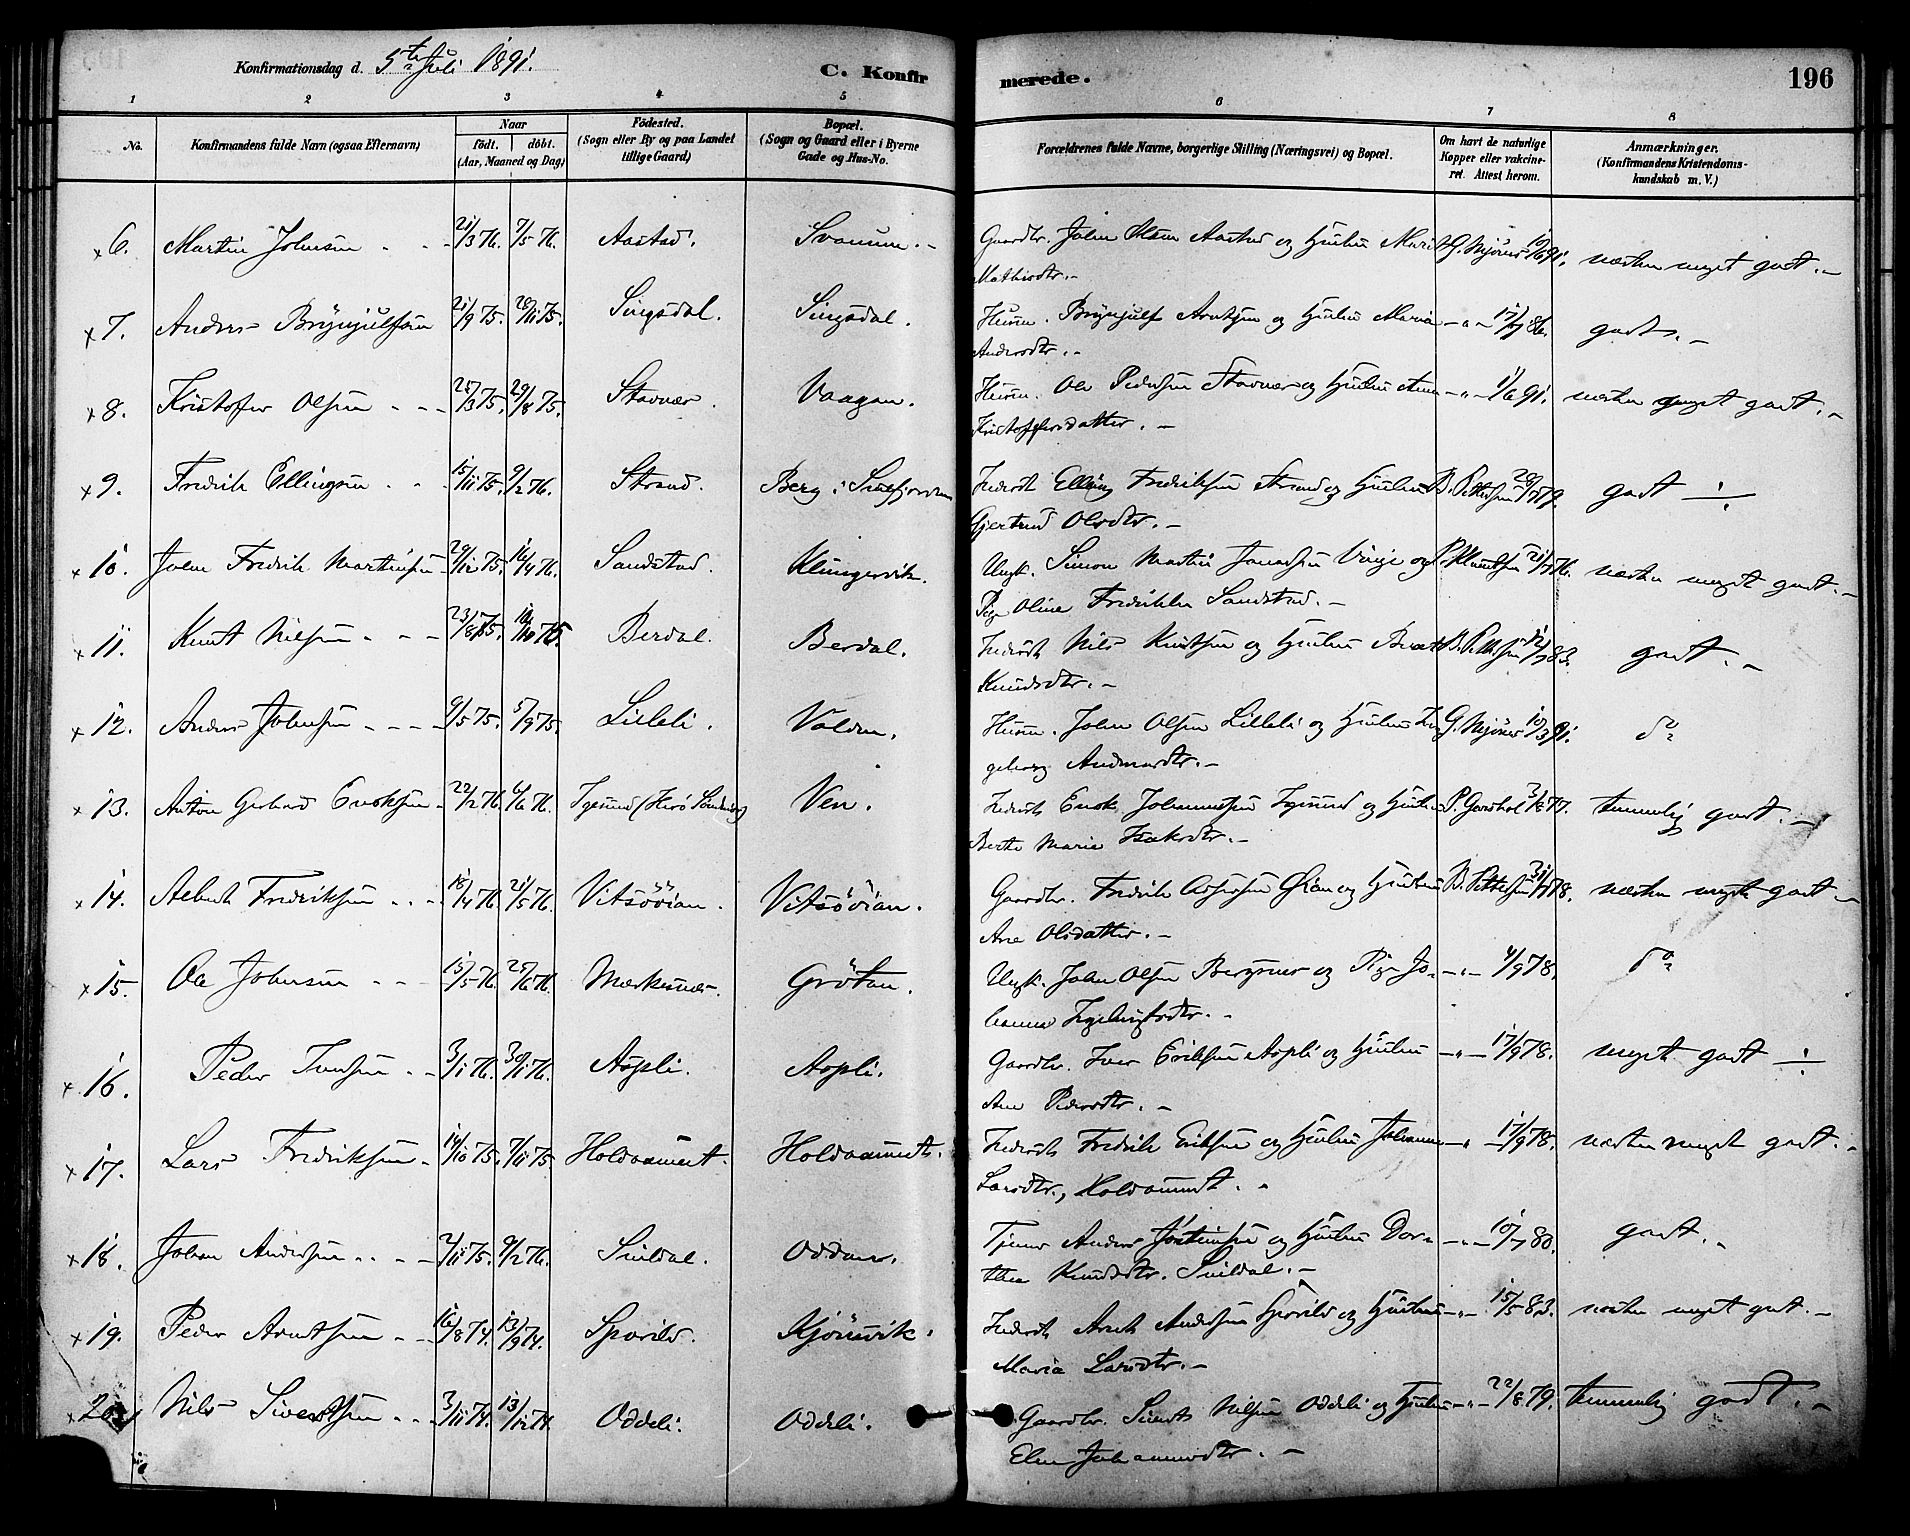 Konfirmationsdag d. 5te Juli 1891. C. Konfirmerede. 196
1 2 3 4 5 6 7 8
No.
Konfirmandens fulde Navn (ogsaa Efternavn)
Naar
födt. döbt.
(Aar, Maaned og Dag)
Födested.
(Sogn eller By og paa Landet
tillige Gaard)
Bopæl.
(Sogn og Gaard eller i Byerne
Gade og Hus-No.
Forældrenes fulde Navne, borgerlige Stilling (Næringsvei) og Bopæl.
Om havt de naturlige
Kopper eller vakcine-
ret. Attest herom.
Anmærkninger.
(Konfirmandens Kristendoms-
kundskab m. V.)
x 6. Martin Johnsen 21/3 76. 7/5 76. Aastad. Svanem. Gaardbr. John Olsen Aastad og Hustru Marit G. Mjönes 10/6 91. næsten meget godt.
Mathisdtr.
x 7. Anders Brynjulfsen 21/9 75. 28/11 75. Singsdal. Singsdal. Husm. Brynjulf Arntsen og Hustru Maria 17/7 86. godt.
Andersdtr.
x 8. Kristofer Olsen 25/3 75. 29/8 75. Stavnær. Vaagan. Husm. Ole Pedersen Stavnær og Hustru Ane 1/6 91. næsten meget godt.
Kristoffersdatter.
x 9. Fredrik Ellingsen 15/11 75. 9/2 76. Strand. Berg i Snefjorden Inderst Elling Fredriksen Strand og Hustru B. Pettersen 28/7 79. godt
Gjertrud Olsdtr.
x 10. John Fredrik Martinsen 29/12 75. 16/4 76. Sandstad. Klungervik. Ungk. Simon Martin Jonassen Vinje og P. Klauetsen 21/7 76. næsten meget godt.
Pige Oline Fredrikke Sandstad.
x 11. Knut Nilsen 23/8 75. 10/10 75. Berdal. Berdal. Inderst Nils Knutsen og Hustru Beret B. Pettersen 12/7 83. godt.
Knudsdtr.
x 12. Anders Johnsen 9/5 75. 5/9 75. Lilleli. Valdm. Husm. John Olsen Lilleli og Hustru In- G. Mjönes 10/3 91. do
geborg Andersdtr.
x 13. Anton Gerhard Enoksen 22/2 76. 4/6 76. Igesund (Herö Sandnes) Ven. Inderst Enok Johannessen Igesund og Hustru P. Gaasdal 3/8 77. temmelig godt.
Berte Marie Isaksdtr.
x 14. Albert Fredriksen 18/4 76. 21/5 76. Vitsööian. Vitsööian. Gaardbr. Fredrik Assersen Öian og Hustru B. Pettersen 31/7 78. næsten meget godt
Ane Olsdatter.
x 15. Ole Johnsen 15/5 76. 25/6 76. Mærkesnes. Grötan. Ungk. John Olsen Bergsnes og Pige Jo- 4/9 78. do
hanna Ingebrigtsdtr.
x 16. Peder Iversen 3/1 76. 30/1 76. Aspli. Aspli. Gaardbr. Iver Eriksen Aspli og Hustru 17/9 78. meget godt
Ane Pedersdtr.
x 17. Lars Fredriksen 14/10 75. 7/11 75 Holdaamert. Holdaamert. Inderst Fredrik Eriksen og Hustru Johanna 17/9 78. næsten meget godt.
Larsdtr., Holdaamert.
x 18. Johan Andersen 2/11 75. 9/2 76. Snildal. Oddan. Tjener Anders Josteinsen og Hustru Dor- 10/7 80. godt.
thea Knudsdtr. Snildal.
x 19. Peder Arntsen 16/8 74. 13/9 74. Sporild. Kjörsvik. Inderst Arnt Andersen Sporild og Hustru 15/5 83. næsten meget godt.
Maria Larsdtr.
x 20. Nils Sivertsen 3/11 74. 13/12 74. Oddeli. Oddeli. Gaardbr. Sivert Nilsen Oddeli og Hustru 22/8 79. temmelig godt.
Elen Johannesdtr.